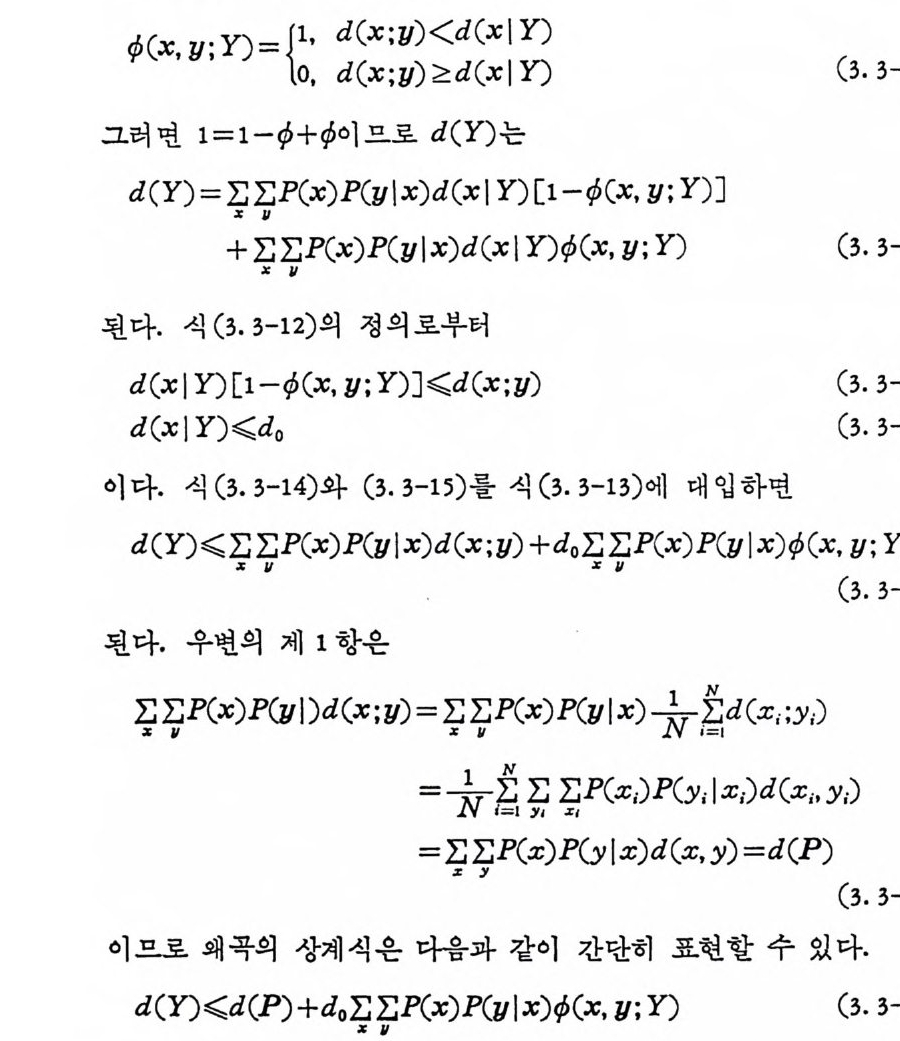 ϕ(x, y; Y)={1, d(x;y)<d(x|Y)
0, d(x;y)≥d(x|Y)
(3. 3-
그러면 1=1−ϕ+ϕ이므로 d(Y)는
d(Y)=∑x∑yP(x)P(y|x)d(x|Y)[1−ϕ(x, y; Y)]
+∑x∑yP(x)P(y|x)d(x|Y)ϕ(x, y; Y) (3. 3-
된다. 식(3. 3-12)의 정의로부터
d(x|Y)[1−ϕ(x, y; Y)]⩽d(x;y) (3. 3-
d(x|Y)⩽d₀ (3. 3-
이다. 식(3. 3-14)와 (3. 3-15)를 식(3. 3-13)에 대입하면
d(Y)⩽∑x∑yP(x)P(y|x)d(x;y)+d₀∑x∑yP(x)P(y|x)ϕ(x, y; Y
(3. 3-
된다. 우변의 제 1 항은
∑x∑yP(x)P(y|)d(x;y)=∑x∑yP(x)P(y|x) 1/N ∑i=1N d(xᵢ;yᵢ)
= 1/N ∑i=1N ∑yᵢ ∑xᵢ P(xᵢ)P(yᵢ|xᵢ)d(xᵢ, yᵢ)
=∑x∑yP(x)P(y|x)d(x, y)=d(P)
(3. 3-
이므로 왜곡의 상계식은 다음과 같이 간단히 표현할 수 있다.
d(Y)⩽d(P)+d₀∑x∑yP(x)P(y|x)ϕ(x, y; Y) (3. 3-